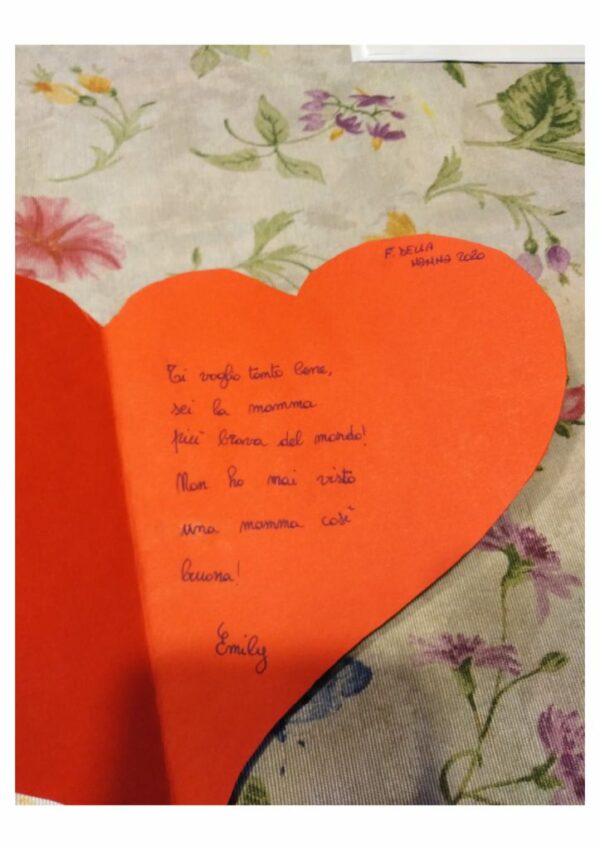 F. DELLA
MAMMA 2020
Ti voglio tanto bene,
sei la mamma
più brava del mondo!
Non ho mai visto
una mamma così
buona!
Emily